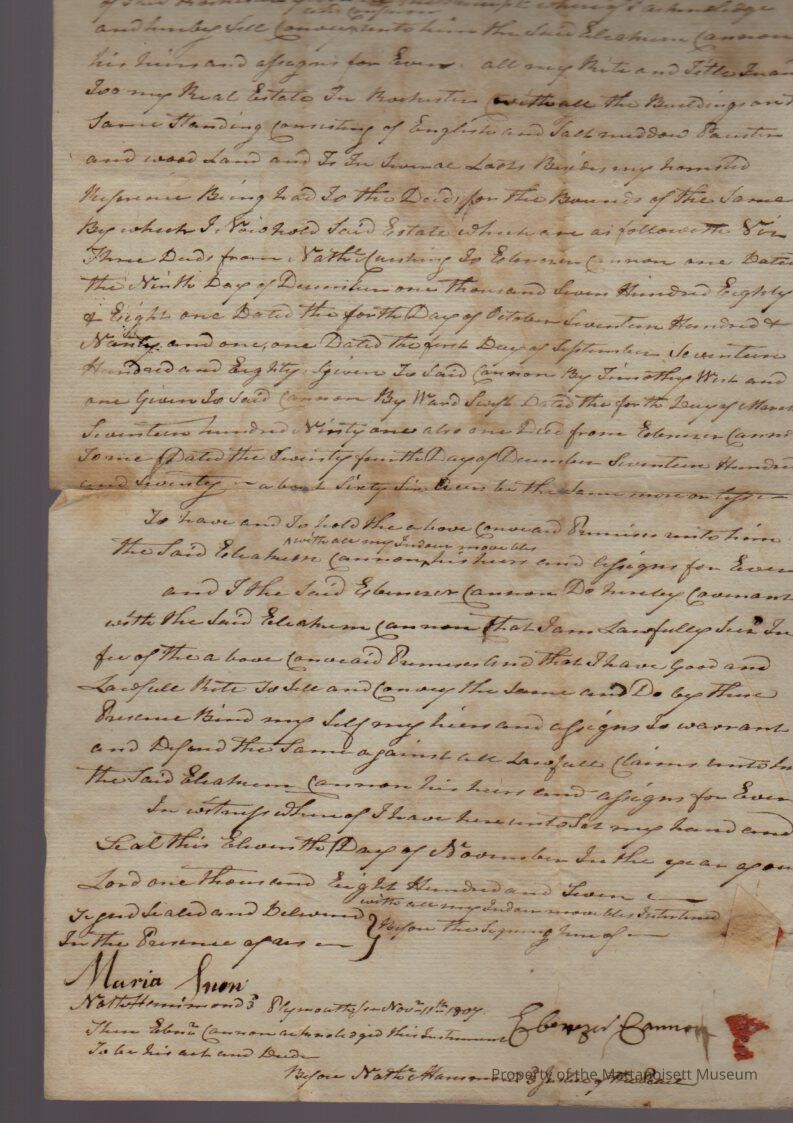 of Said
and hereby Sell Convey unto him the Said Eleakum Cannon
his heirs and assigns for Ever all my Rite and Title In an
Too my Real Estate In Rochester with all the Buildings on
Same Standing Consisting of English and Salt meddow Pauster
and wood Land and Is In Several Lotts Besides my homsted
Refrence Being had To the Deeds for the Bounds of the Same
By which I Now hold Said Estate which are as followeth Viz
Three Deeds from Nathll Cushing To Ebenezer Cannon one Dated
the Ninth Day of December one thousand Seven Hundred Eighty
& Eight one Dated the forth Day of October Seventeen Hundred &
Ninty and one, one Dated the first Day of September Seventeen
Hundred and Eighty given To Said Cannon By Timothy West and
one Given To Said Cannon By Ward Swift Dated the forth Day of March
Seventeen hundred Ninty one also one Deed from Ebenezer Cann
To me Dated the Twenty fourth Day of December Seventeen Hundred
and Seventy - above Sixty Six acres be the same more or less
To have and To hold the above Conveaid Premises unto him
with all my Indoor movebles
the Said Eleakum Cannon his heirs and Assigns for Ever
and I the Said Ebenezer Cannon Do hereby Covenant
with the Said Eleakum Cannon that I am Lawfully Seiz In
fee of the above Conveaid Premises and that I have Good and
Lawfull Rite To Sell and Convey the Same and Do by these
Presence Bind my Self my heirs and assigns to warrant
and Defend the Same against all Lawfull Claims unto
the Said Eleakum Cannon his heirs and assigns for Ever
In witness whereof I have here unto Set my hand and
Seal this Eleventh Day of November In the year of our
Lord one thousand Eight Hundred and Seven
with all my Indoor movebles Interlined
Signed Sealed and Delivered
Before the Signing hereof
In the Presence of us
Maria
Nathll Hammond 3d Plymouth ss Novr 11th 1807
Then Ebenr Cannon acknowledged this Instrument
Ebenezer Cannon
To be his act and Deed
Before Nathll Hammond 3d Justice of the Peace
Property of the Mattapoisett Museum